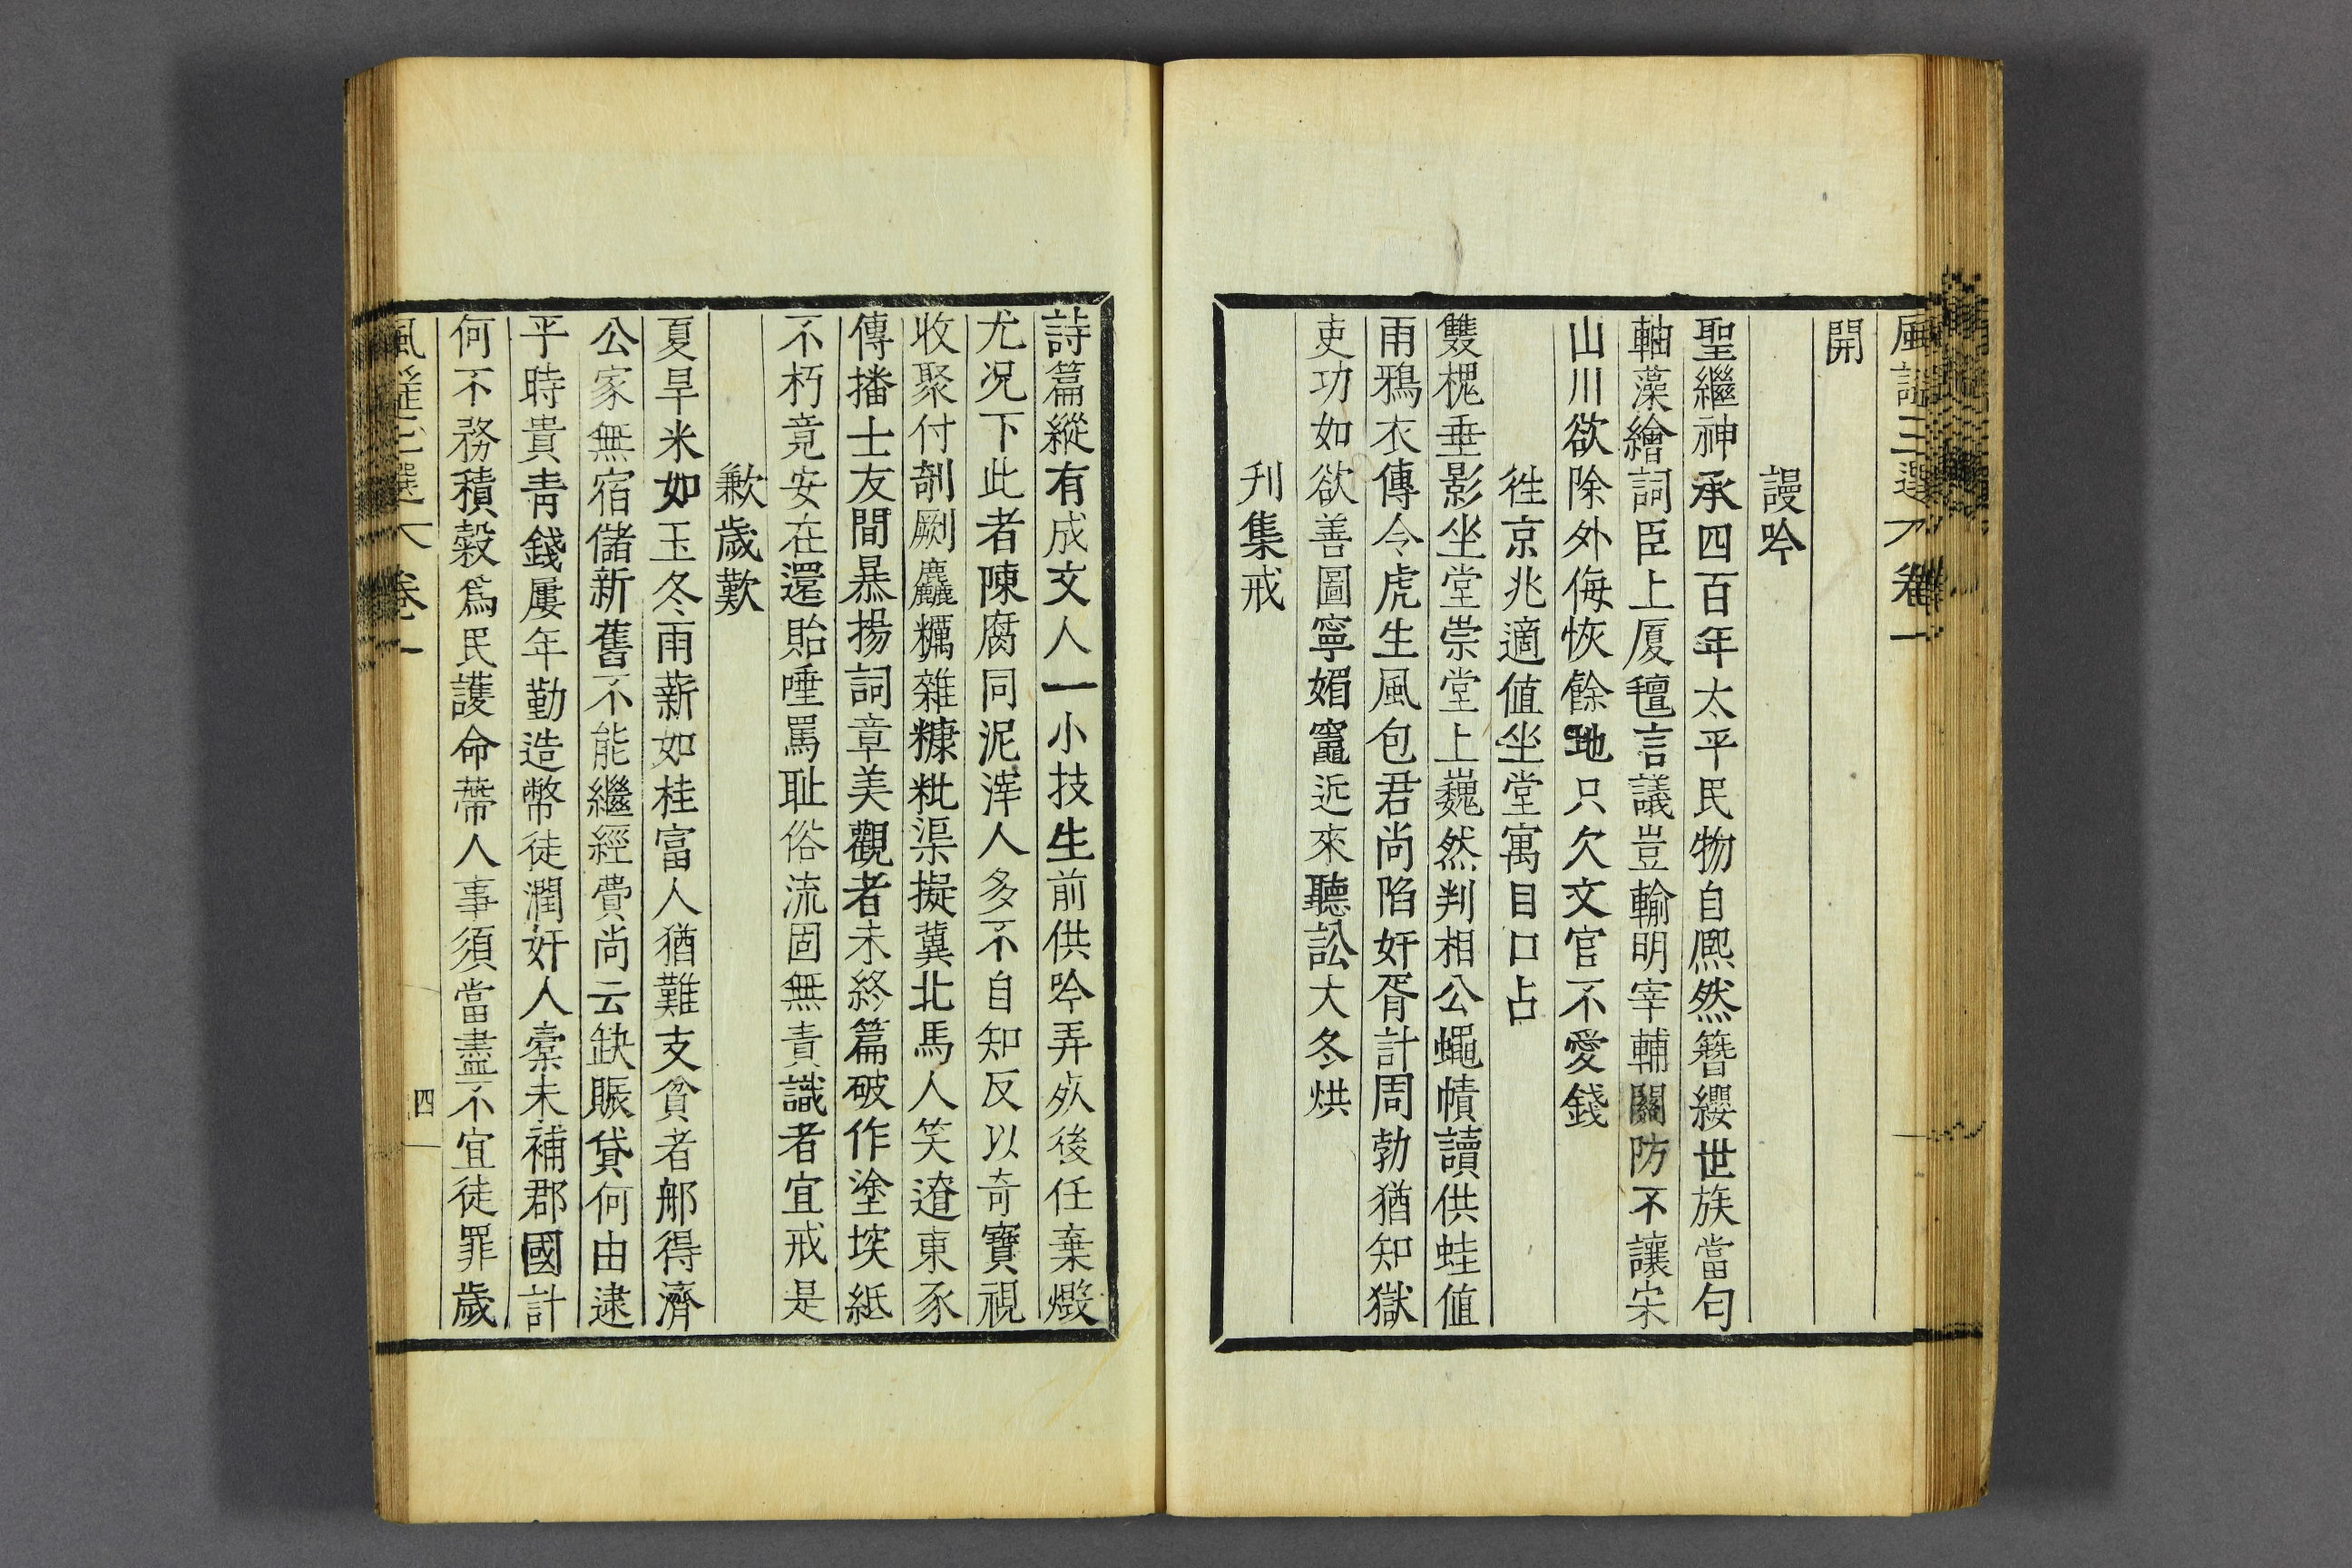 風謠三選 卷一
開
謾吟
聖繼神承四百年太平民物自熈然簪纓世族當匀
軸藻繪詞臣上厦氊言議豈輸明宰輔關防不讓宋
山川欲除外侮恢餘地只欠文官不愛錢
徃京兆適值坐堂寓目口占
雙槐垂影坐堂崇堂上巍然判相公蠅幘讀供蛙值
雨鴉衣傳令虎生風包君尚陷奸胥計周勃猶知獄
吏功如欲善圖寧媚竈近來聽訟大冬烘
刋集戒
詩篇縱有成文人一小技生前供吟弄死後任棄燬
尤况下此者陳腐同泥滓人多不自知反以奇寶視
收聚付剞劂麤糲雜糠粃渠擬冀北馬人笑遼東豕
傳播士友間暴揚詞章美觀者未終篇破作塗堗紙
不朽竟安在還貽唾罵耻俗流固無責識者宜戒是
歉歲歎
夏旱米如玉冬雨薪如桂富人猶難支貧者那得濟
公家無宿儲新舊不能繼經費尚云缺賑貸何由逮
乎時貴靑錢屢年勤造幣徒潤奸人槖未補郡國計
何不務積穀爲民護命蔕人事須當盡不宜徒罪歲
風謠三選 卷一
四